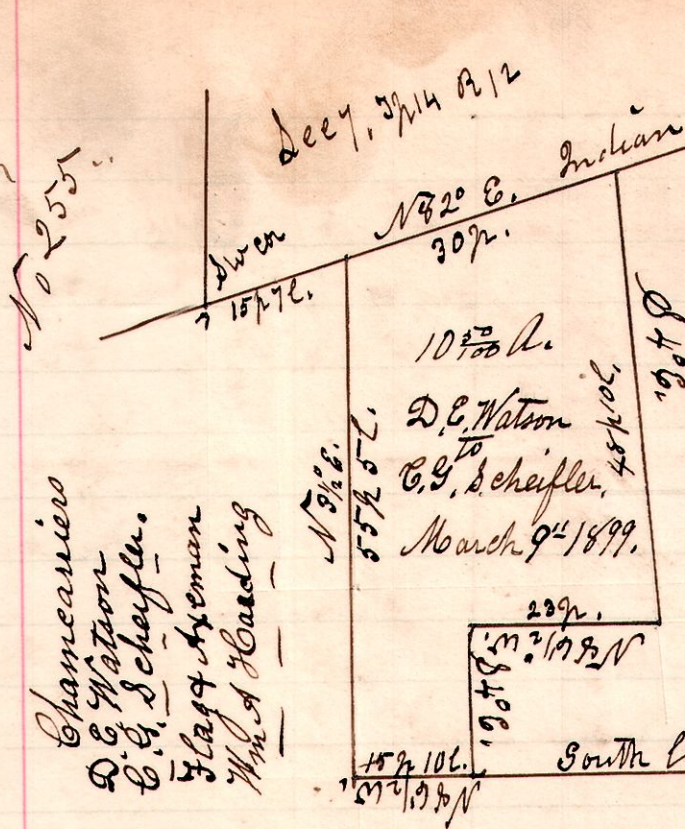 No 255
Sec 7, Tp 14 R 12
Indian
N 82° E.
30 p.
Sw cor
15 p 7 l.
10 50/100 A.
D. E. Watson
to
C. G. Scheifler.
March 9" 1899.
N 3 1/2° E.
55 p 5 l.
48 p 10 l.
S 4° E.
23 p.
N 86 1/2 W.
S 4° E.
15 p 10 l.
N 86 1/2 W
South
Chaincarriers
D. E. Watson
C. G. Scheifler.
Flag & Axeman
Wm A Harding